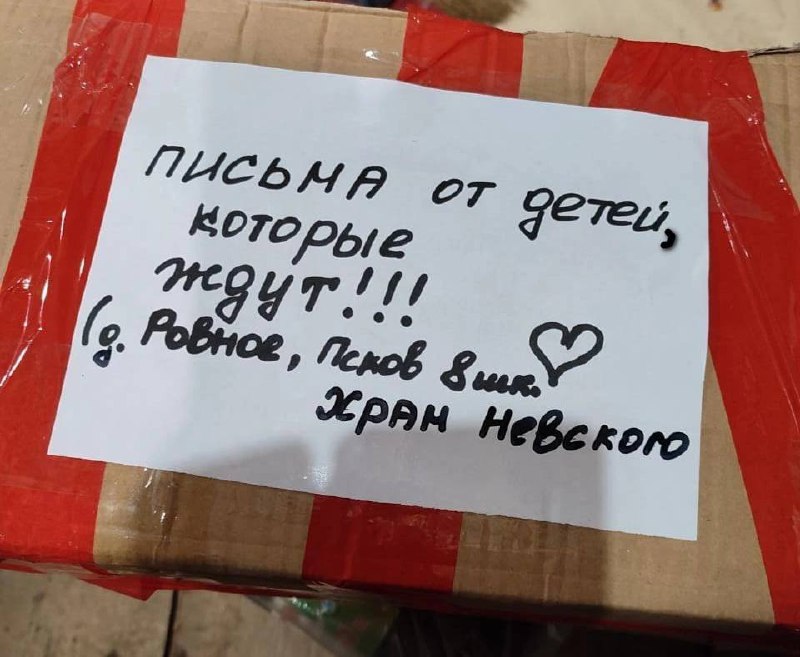 письма от детей,
которые
ждут!!!
(д. Ровное, Псков 8 шк.
Храм Невского